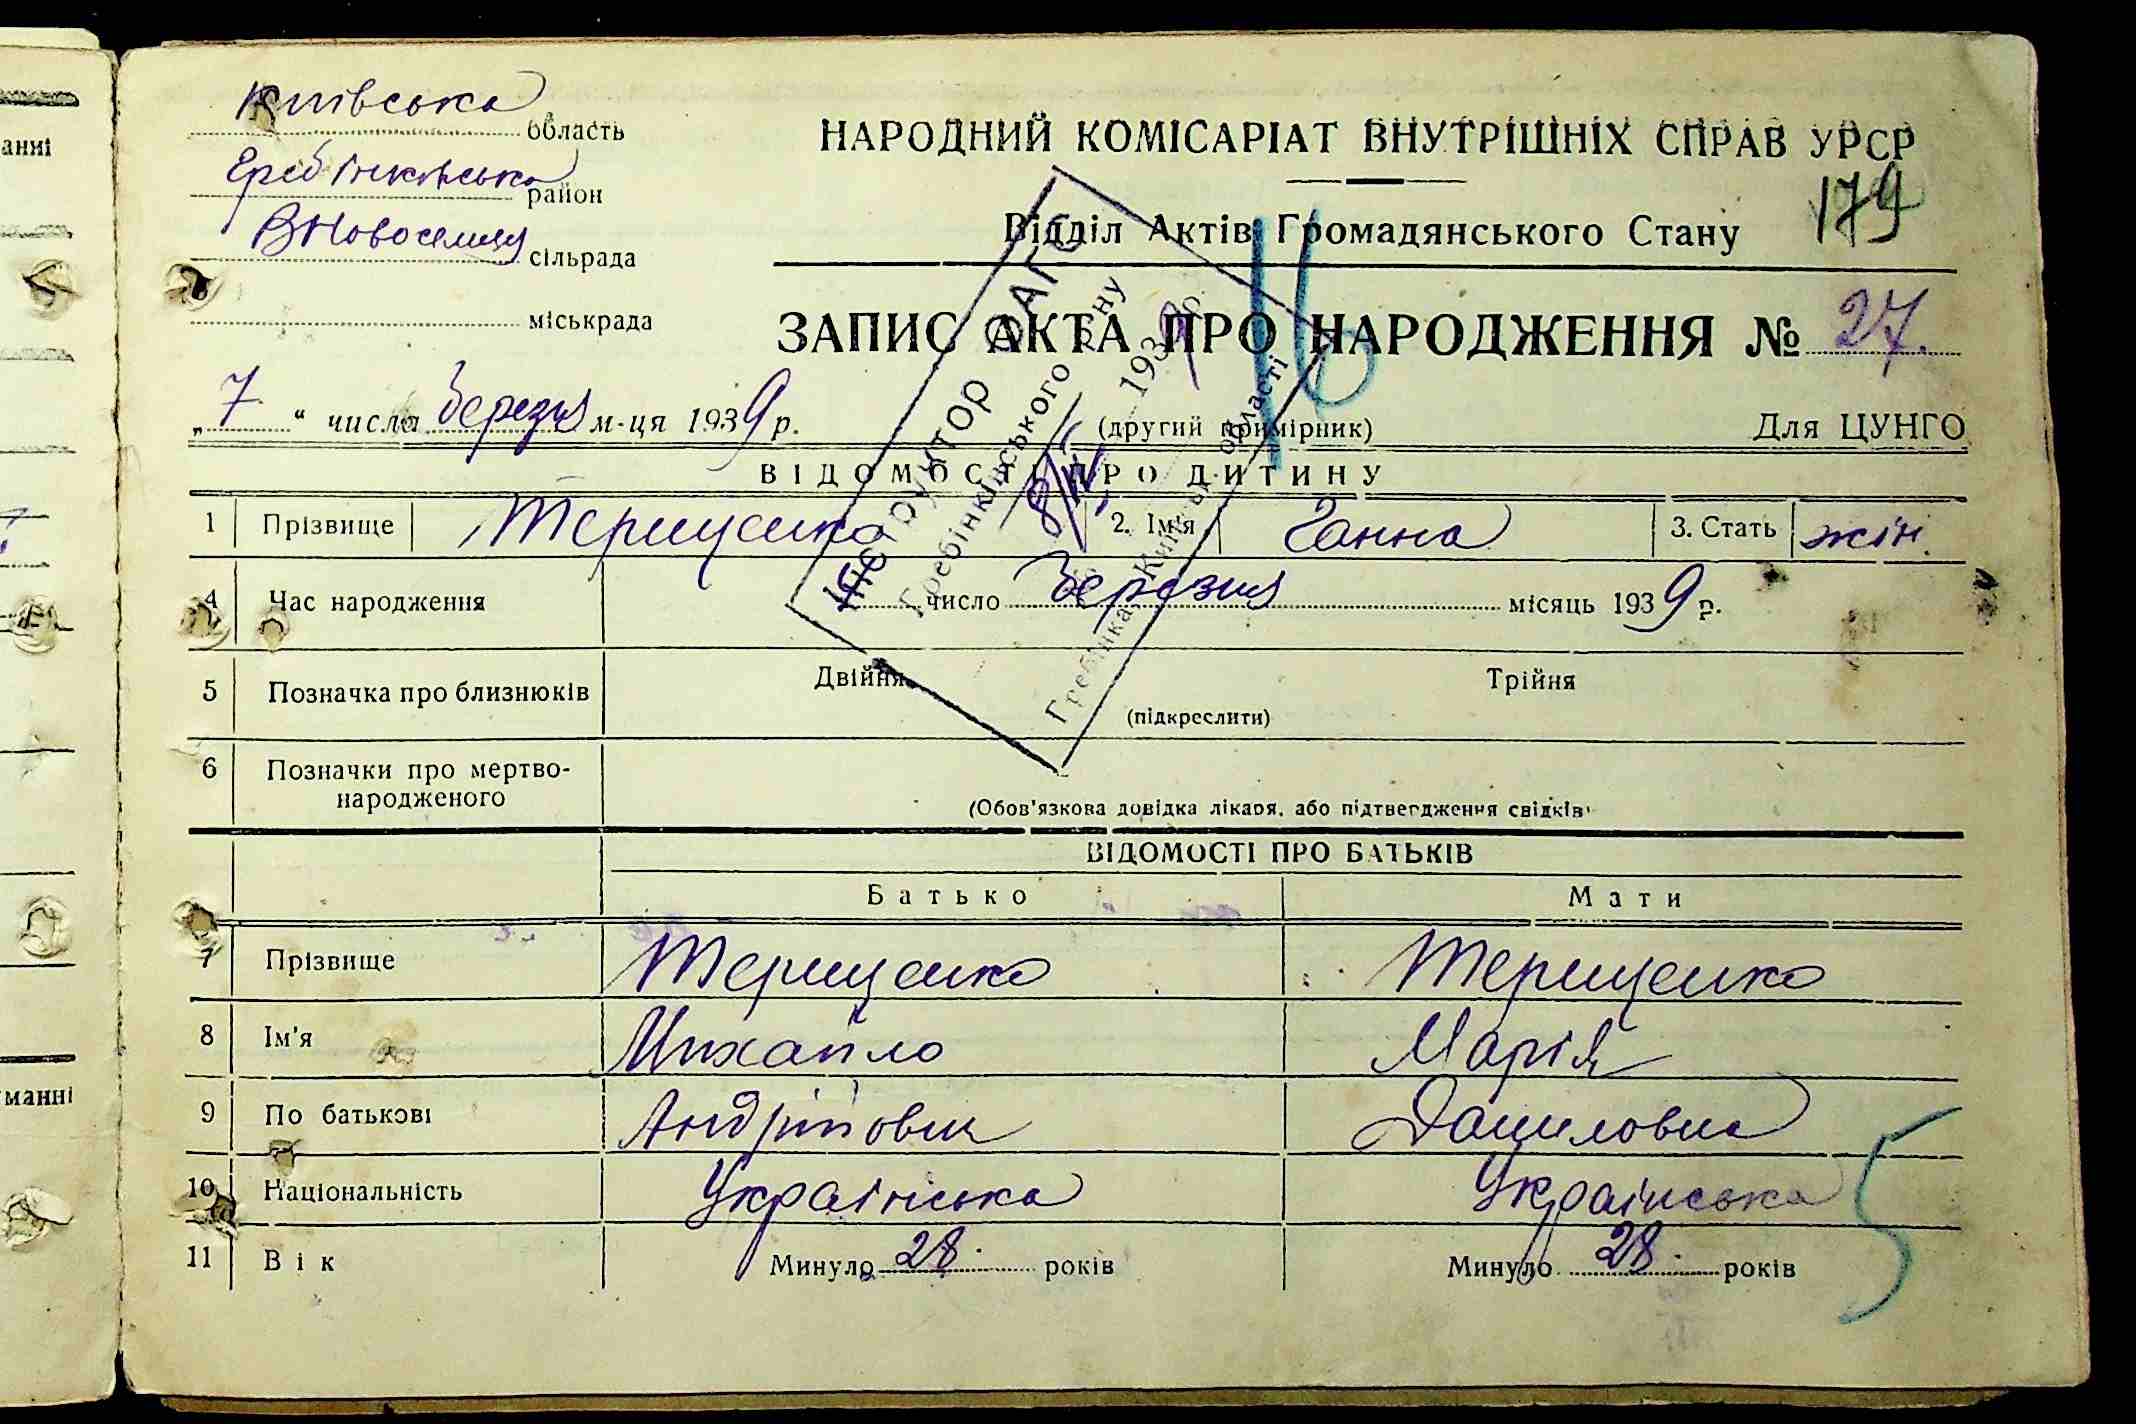 анні
манні
Київська область
Гребінківська район
ВНовоселиця сільрада
міськрада
НАРОДНИЙ КОМІСАРІАТ ВНУТРІШНІХ СПРАВ УРСР
179
Відділ Актів Громадянського Стану
16
ЗАПИС АКТА ПРО НАРОДЖЕННЯ № 27.
„7“ числа березня м-ця 1939 р. (другий примірник) Для ЦУНГО
Інструктор ВАГС
Гребінківського р ну
8/IV 1939 р.
Гребінка, Київськ області
ВІДОМОСТІ ПРО ДИТИНУ
1 Прізвище Терещенко 2. Ім'я Ганна 3. Стать жін.
4 Час народження число березня місяць 1939 р.
5 Позначка про близнюків Двійня Трійня
(підкреслити)
6 Позначки про мертво-
народженого
(Обов'язкова довідка лікаря, або підтвердження свідків)
ВІДОМОСТІ ПРО БАТЬКІВ
Батько Мати
7 Прізвище Терещенко Терещенко
8 Ім'я Михайло Марія
9 По батькові Андрійович Даниловна
10 Національність Українська Українська
5
11 Вік Минуло 28 років Минуло 28 років